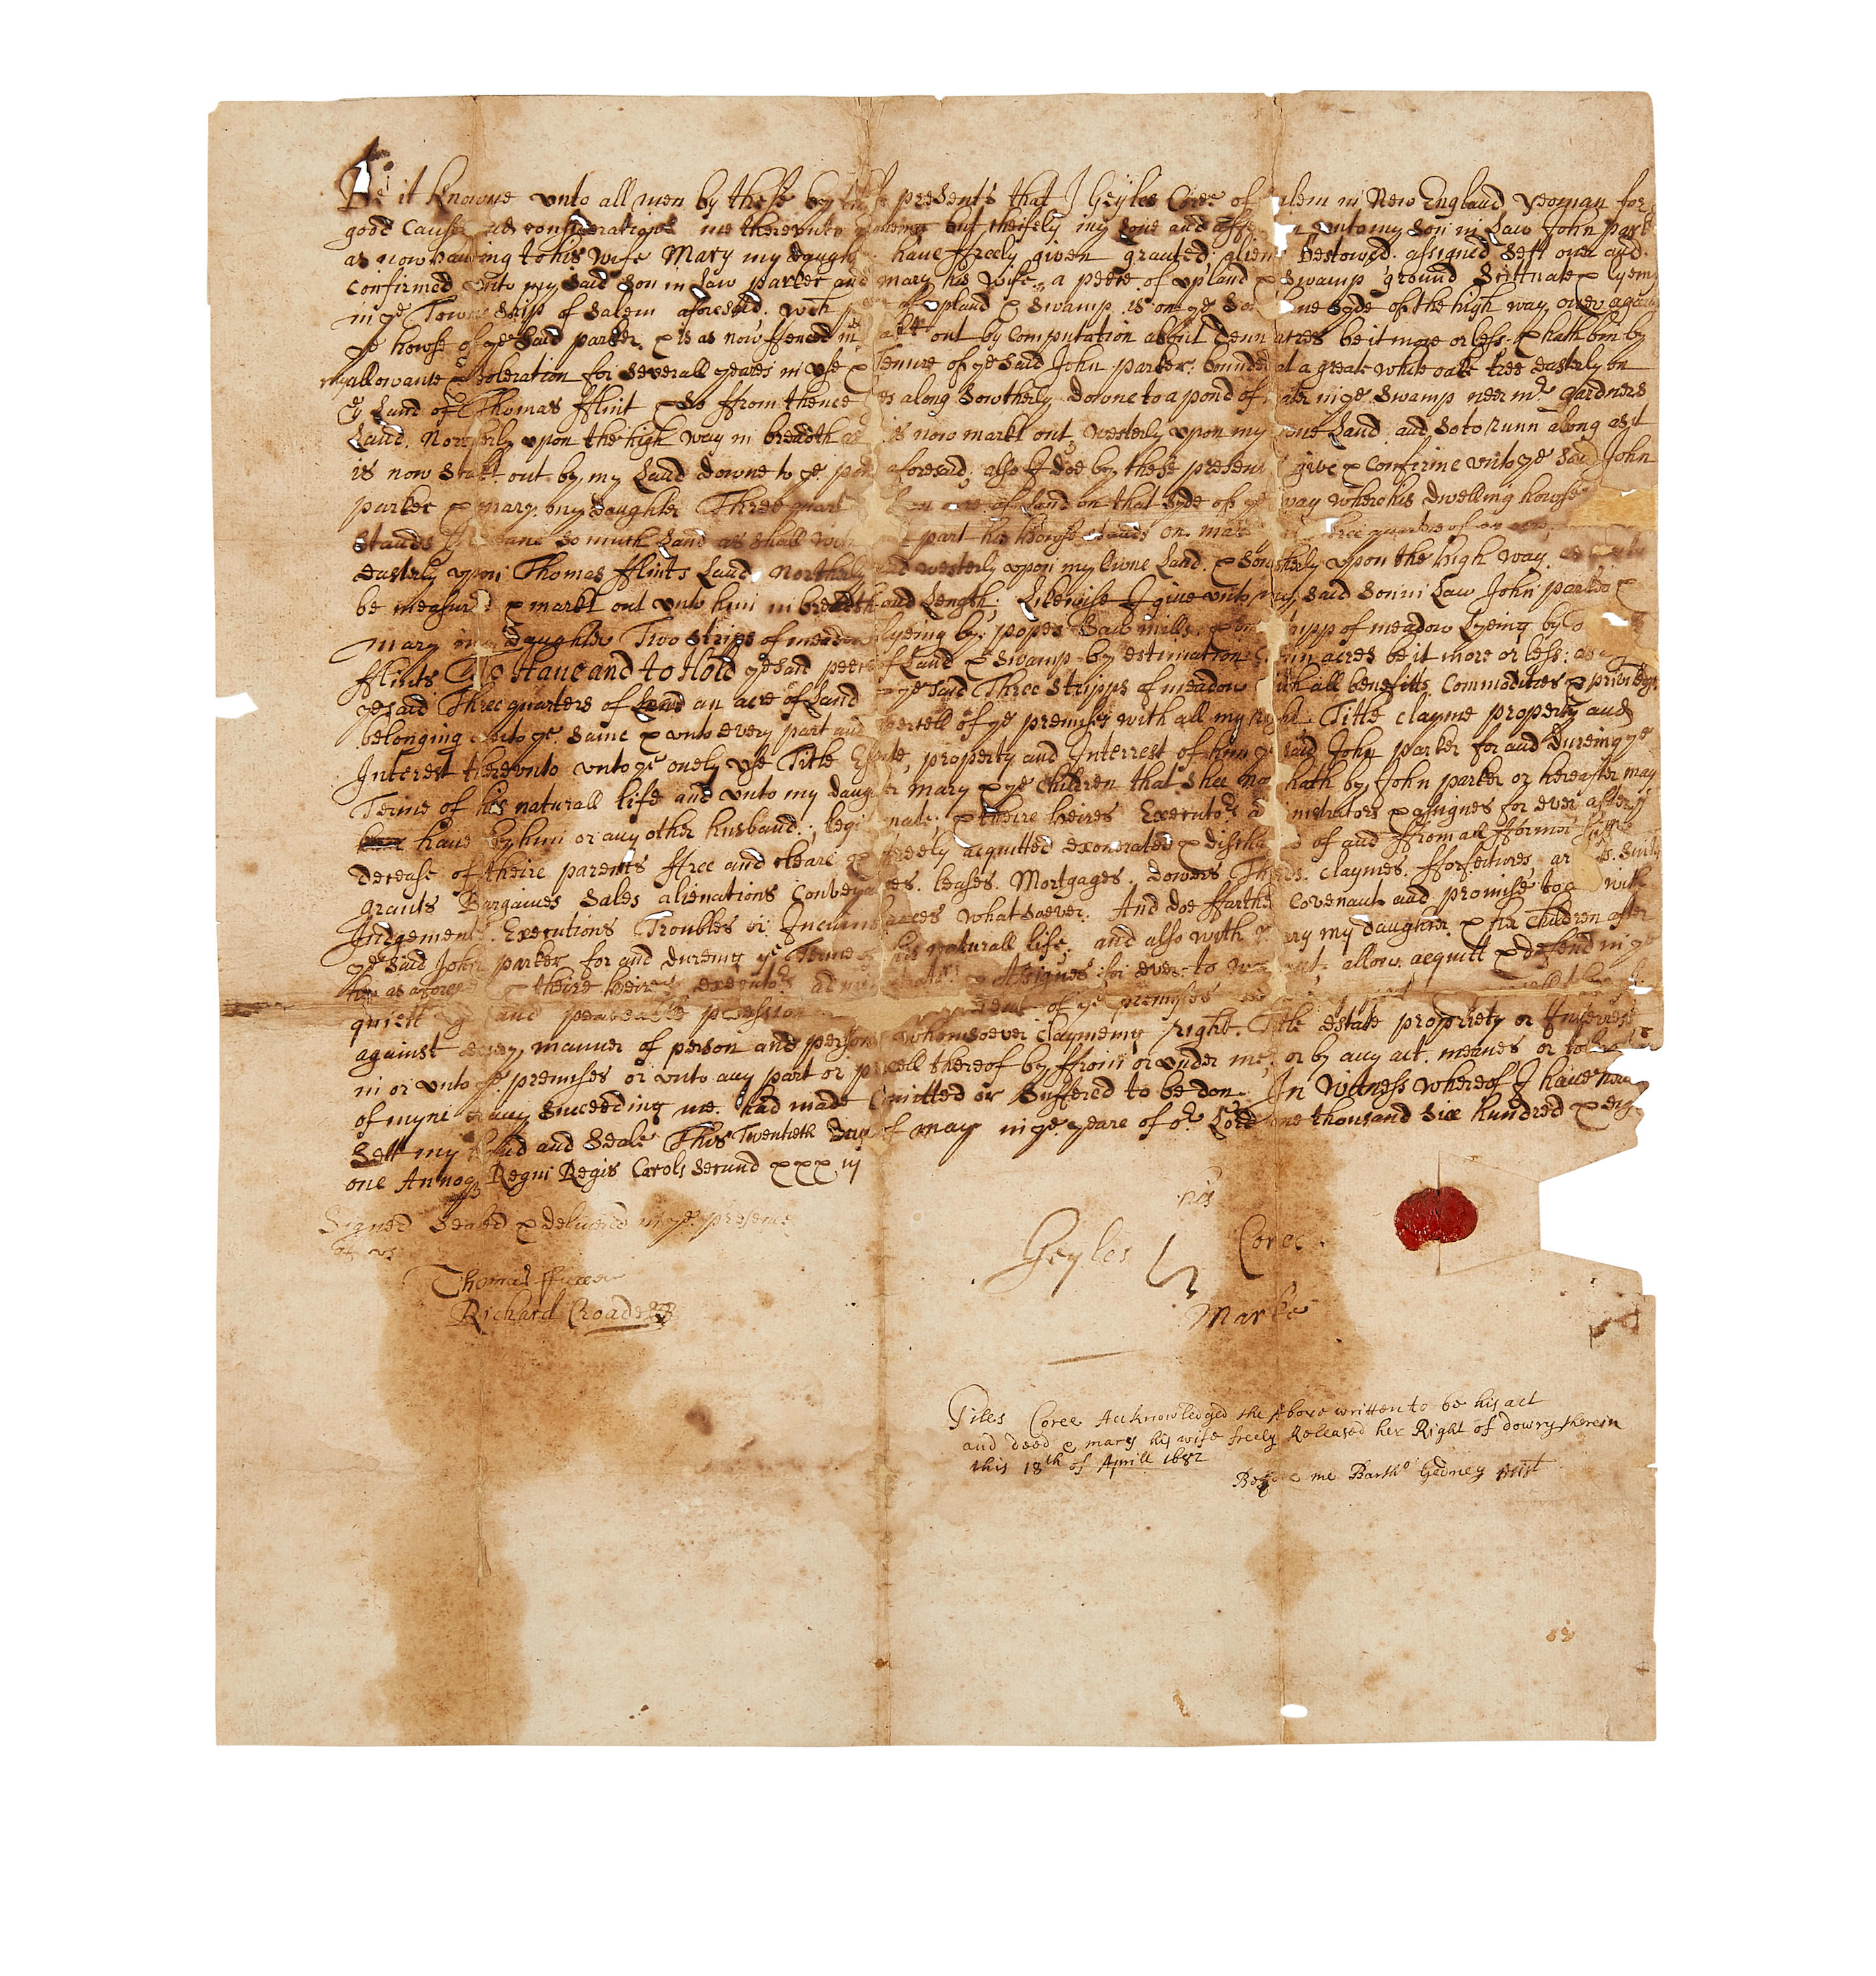 Be it Knowne unto all men by these by these presents that I Geyles Coree of Salem in New England Yeoman for
good Causes and considerations me thereunto moveing but cheifely my Love and affection unto my Son in Law John park
as now haveing to his wife Mary my daughter have ffreely given granted, alien Bestowed. assigned Sett over and
confirmed unto my said Son in Law parker and mary his wife, a peece of upland & Swamp ground Scittuate & lyeing
in ye Towne Ship of Salem aforesaid. wch of upland & Swamp is on ye Syde of the high way over against
ye howse of ye said parker. & is as now ffenced in out by Computation about Tenn acres be it more or less. & hath bin by
my allowance & toleration for severall yeares in use & Tenure of ye said John parker. bounded at a greate white oake tree easterly on
ye Land of Thomas fflint & So ffrom thence along Sowtherly downe to a pond of water in ye Swamp neer mr Gardners
Land. Northerly upon the high way in breadth as is now markt out, westerly upon my owne Land. and so to runn along as it
is now Stakt out by my Land downe to ye pond aforesaid; also I doe by these presents give & confirme unto ye said John
parker & mary my daughter Three quart of an acre of Land on that Syde of ye way where his dwelling howse
Stands I meane so much Land as shall with part his howse stands on make three quarters of an acre
easterly upon Thomas fflints Land Northerly and westerly upon my owne Land. & Sowtherly upon the high way
be measured & markt out unto him in breadth and Length; Likewise I give unto my said Son in Law John parker &
mary my daughter Two Stripps of meadow lyeing by popes Saw mills & one stripp of meadow Lyeing by
fflints To Have and to Hold ye said peece of Land & Swamp by estimation Tenn acres be it more or less: as
ye said Three quarters of Land an acre of Land & ye said Three Stripps of meadow with all benefitts. Commodities & priviledges
belonging unto ye same & unto every part and peercell of ye premises with all my right Title clayme property and
Interest thereunto unto ye onely use Title Estate, property and Interrest of him ye said John parker for and dureing ye
Terme of his naturall life and unto my daughter mary & ye children that shee now hath by John parker or hereafter may
have by him or any other husband; legitimate; & theire heires Executors administrators & assignes for ever after ye
decease of theire parents ffree and cleare & ffreely acquitted exonerated & discharged of and ffrom all fformer
grants Bargaines Sales alienations Conveyances. leases. Mortgages. dowers Thirds. claymes. fforfectures. Suits
Judgements. Executions Troubles or Incumbrances whatsoever. And doe ffurther Covenant and promise to & with
ye said John parker for and dureing ye Terme of his naturall life. and also with mary my daughter & her Children after
him as aforesaid & theire heires executors administrators & Assignes for ever to warrant, allow. acquitt & defend in ye
quiett and peaceable possession of ye premises
against every manner of person and persons whomsoever claymeing right. Title estate propriety or Interest
in or unto ye premises or unto any part or parcell thereof by ffrom or under me, or by any act. meanes or
of myne or any succeeding me. had made Comitted or Suffered to be don. In witness whereof I have
Sett my Hand and Seale This Twentieth Day of may in ye yeare of or Lord one thousand Six hundred &
one Annoq Regni Regis Caroli Secund xxx iij
Signed Sealed & delivered in ye presence
of us
Thomas ffuller
Richard Croade
his
Geyles Coree
Marke
Giles Coree Acknowledged the Above written to be his act
and deed & mary his wife freely Released her Right of dowry therein
this 18th of Aprill 1682
Before me Bartho Gedney Asist